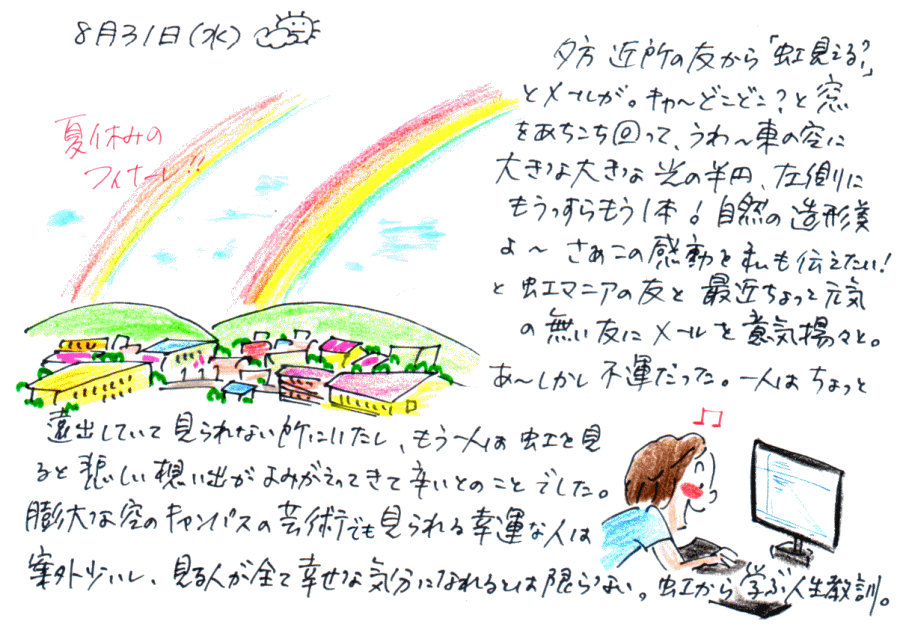 8月31日(水)
夏休みの
フィナーレ!!
夕方 近所の友から「虹見える?」
とメールが。キャ〜どこどこ?と窓
をあちこち回って、うわ〜東の空に
大きな大きな光の半円、左側に
もうっすらもう1本!自然の造形美
よ〜 さぁこの感動を私も伝えたい!
と虹マニアの友と 最近ちょっと元気
の無い友にメールを意気揚々と。
あ〜しかし不運だった。一人はちょっと
遠出していて見られない所にいたし、もう一人は 虹を見
ると悲しい想い出がよみがえってきて辛いとのことでした。
膨大な空のキャンバスの芸術でも見られる幸運な人は
案外少いし、見る人が全て幸せな気分になれるとは限らない。虹から学ぶ人生教訓。